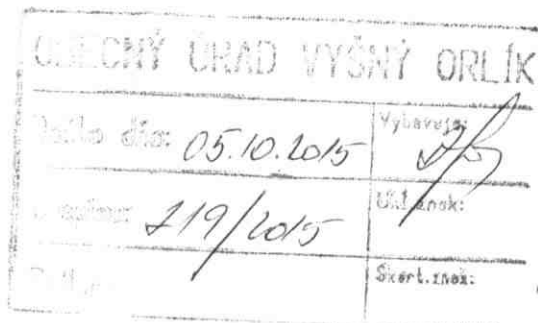 OBECNÝ ÚRAD VYŠNÝ ORLÍK
Došlo dňa: 05.10.2015 Vybavuje:
219/2015 Ukl.znak:
Skart.znak: